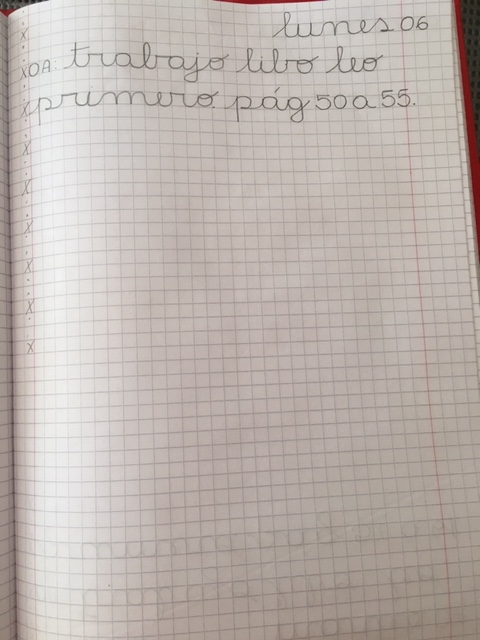 lunes 06
X
XOA: trabajo libo leo
X primero. pág 50 a 55.
X
X
X
X
X
X